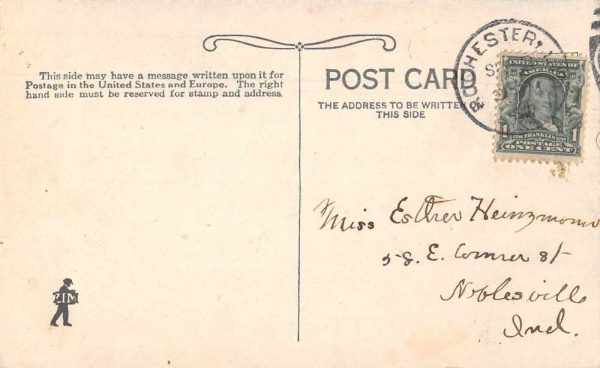 This side may have a message written upon it for
Postage in the United States and Europe. The right
hand side must be reserved for stamp and address.
POST CARD
THE ADDRESS TO BE WRITTEN ON
THIS SIDE
ROCHESTER
UNITED STATES OF AMERICA
FRANKLIN
1 POSTAGE 1
ONE CENT
Miss Esther Heinzmann
58. E. Conner St
Noblesville
Ind.
ZIM